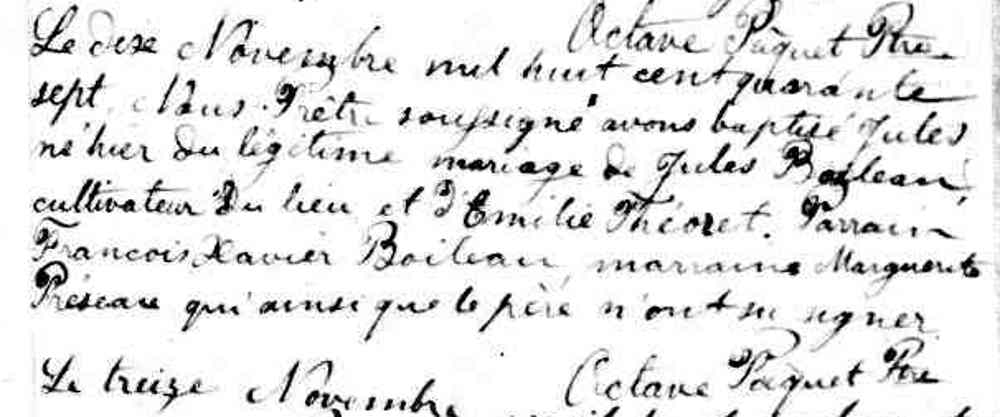 Octave Pâquet Ptre
Le dixe Novembre mil huit cent quarante
sept, Nous Prêtre soussigné avons baptisé Jules
né hier du légitime mariage de Jules Boileau,
cultivateur du lieu et d'Emilie Théoret. Parrain
Francois Xavier Boileau, marraine Marguerite
qui ainsi que le père n'ont su signer
Octave Pâquet Ptre
Le treize Novembre